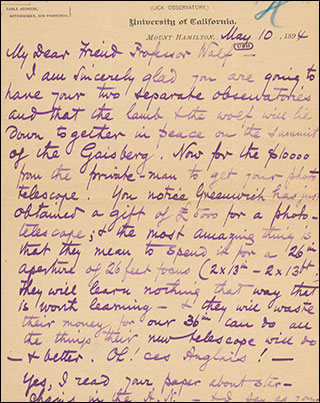 CABLE ADDRESS,
ASTRONOMER, SAN FRANCISCO.
(LICK OBSERVATORY.)
University of California.
MOUNT HAMILTON, May 10, 1894
My Dear Friend Professor Wolf —
I am sincerely glad you are going to
have your two separate observatories
and that the lamb & the wolf will lie
down together in peace on the summit
of the Gaisberg. Now for the $10000
from the private-man to get your phot
telescope. You notice Greenwich has just
obtained a gift of £5000 for a photo-
telescope; & the most amazing thing is
that they mean to spend it for a 26in
aperture of 26 feet focus (2x13in - 2x13ft,
they will learn nothing that way that
is worth learning — & they will waste
their money, for our 36in can do all
the things their new telescope will do
— & better. Oh! ces Anglais! —
Yes, I read your paper about star-
chains in the A.N. — & I as you